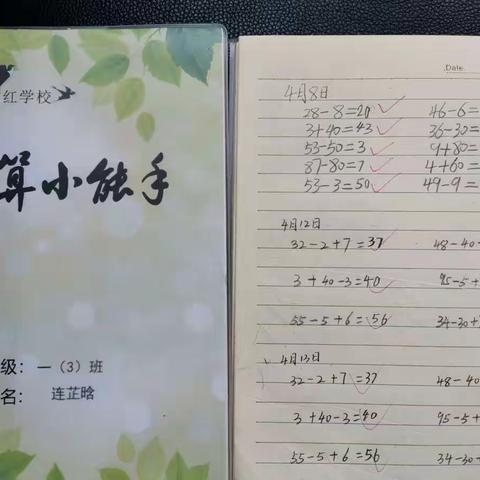 红学校
算小能手
级：一（3）班
名：连芷晗
Date.
4月8日
28-8=20 46-6=
3+40=43 36-30=
53-50=3 9+80=
87-80=7 4+60=
53-3=50 49-9=
4月12日
32-2+7=37 48-40
3+40-3=40 95-5+
55-5+6=56 34-30+
4月13日
32-2+7=37 48-40
3+40-3=40 95-5+
55-5+6=56 34-30+